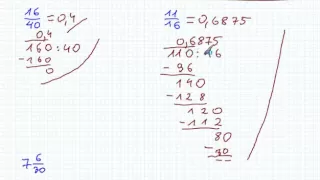 16/40 = 0,4
0,4
160:40
-160
0
11/16 = 0,6875
0,6875
110:16
-96
140
-128
120
-112
80
-80
--
7 6/30